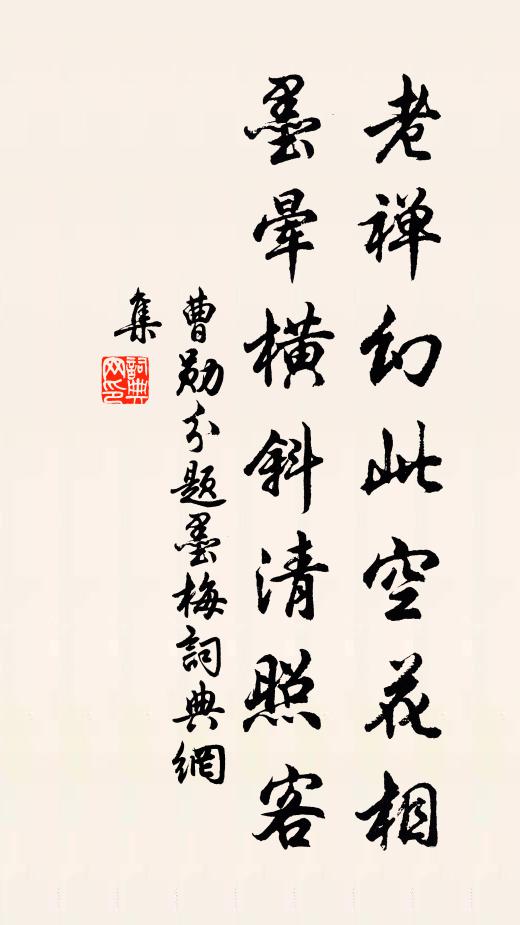 老禅幻此空花相
墨晕横斜清照客
曹勋分题墨梅詞典網
集
詞典
网印